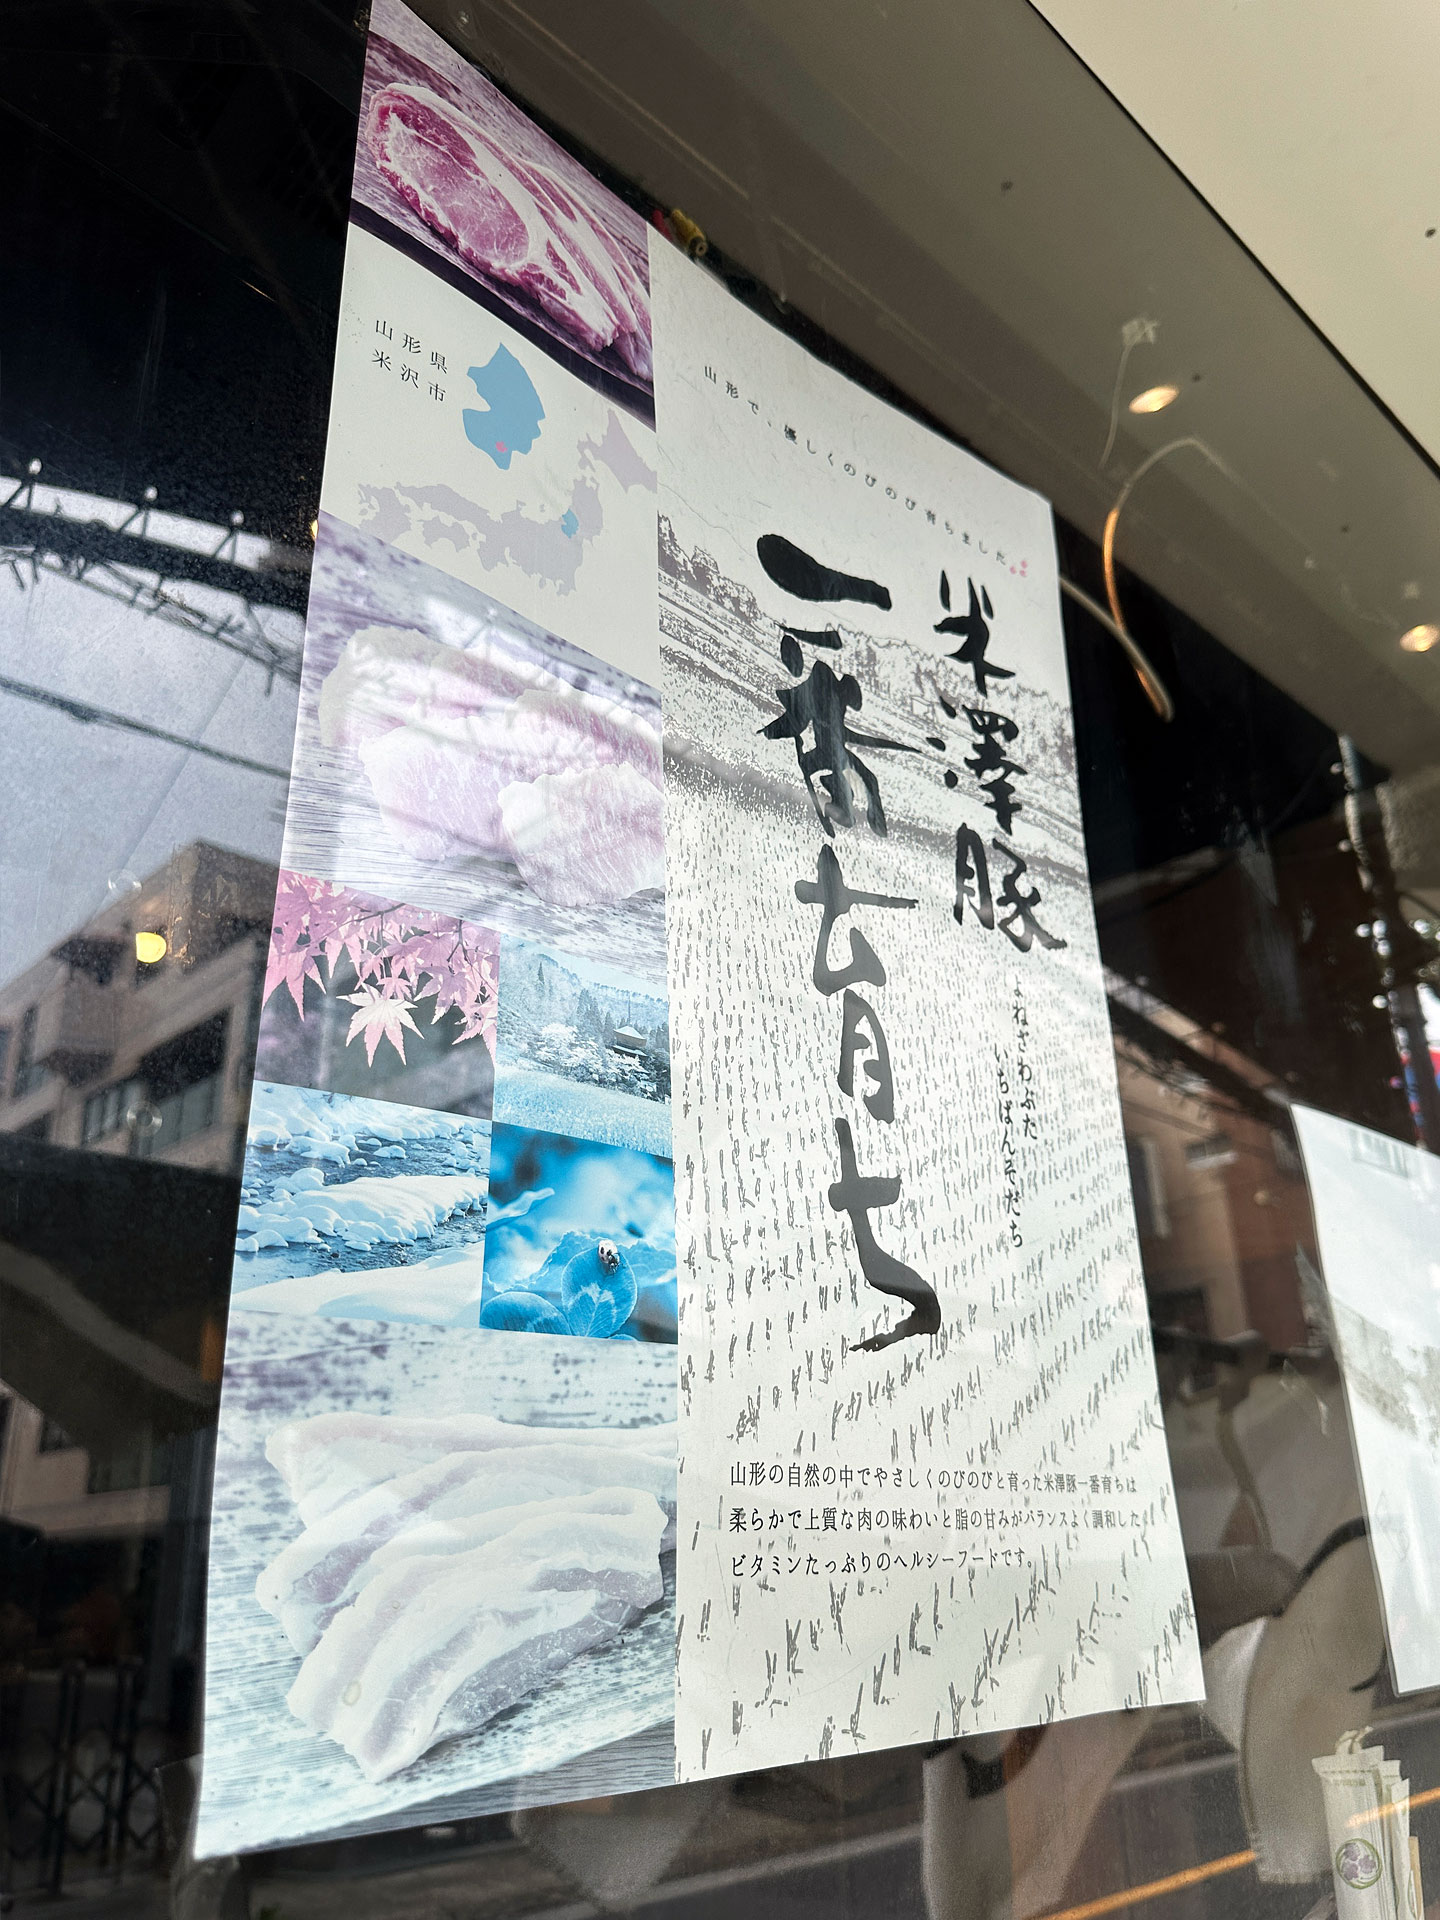 山形県
米沢市
山形で、優しくのびのび育ちました
米澤豚
一番育ち
よねざわぶた
いちばんそだち
山形の自然の中でやさしくのびのびと育った米澤豚一番育ちは
柔らかで上質な肉の味わいと脂の甘みがバランスよく調和した
ビタミンたっぷりのヘルシーフードです。